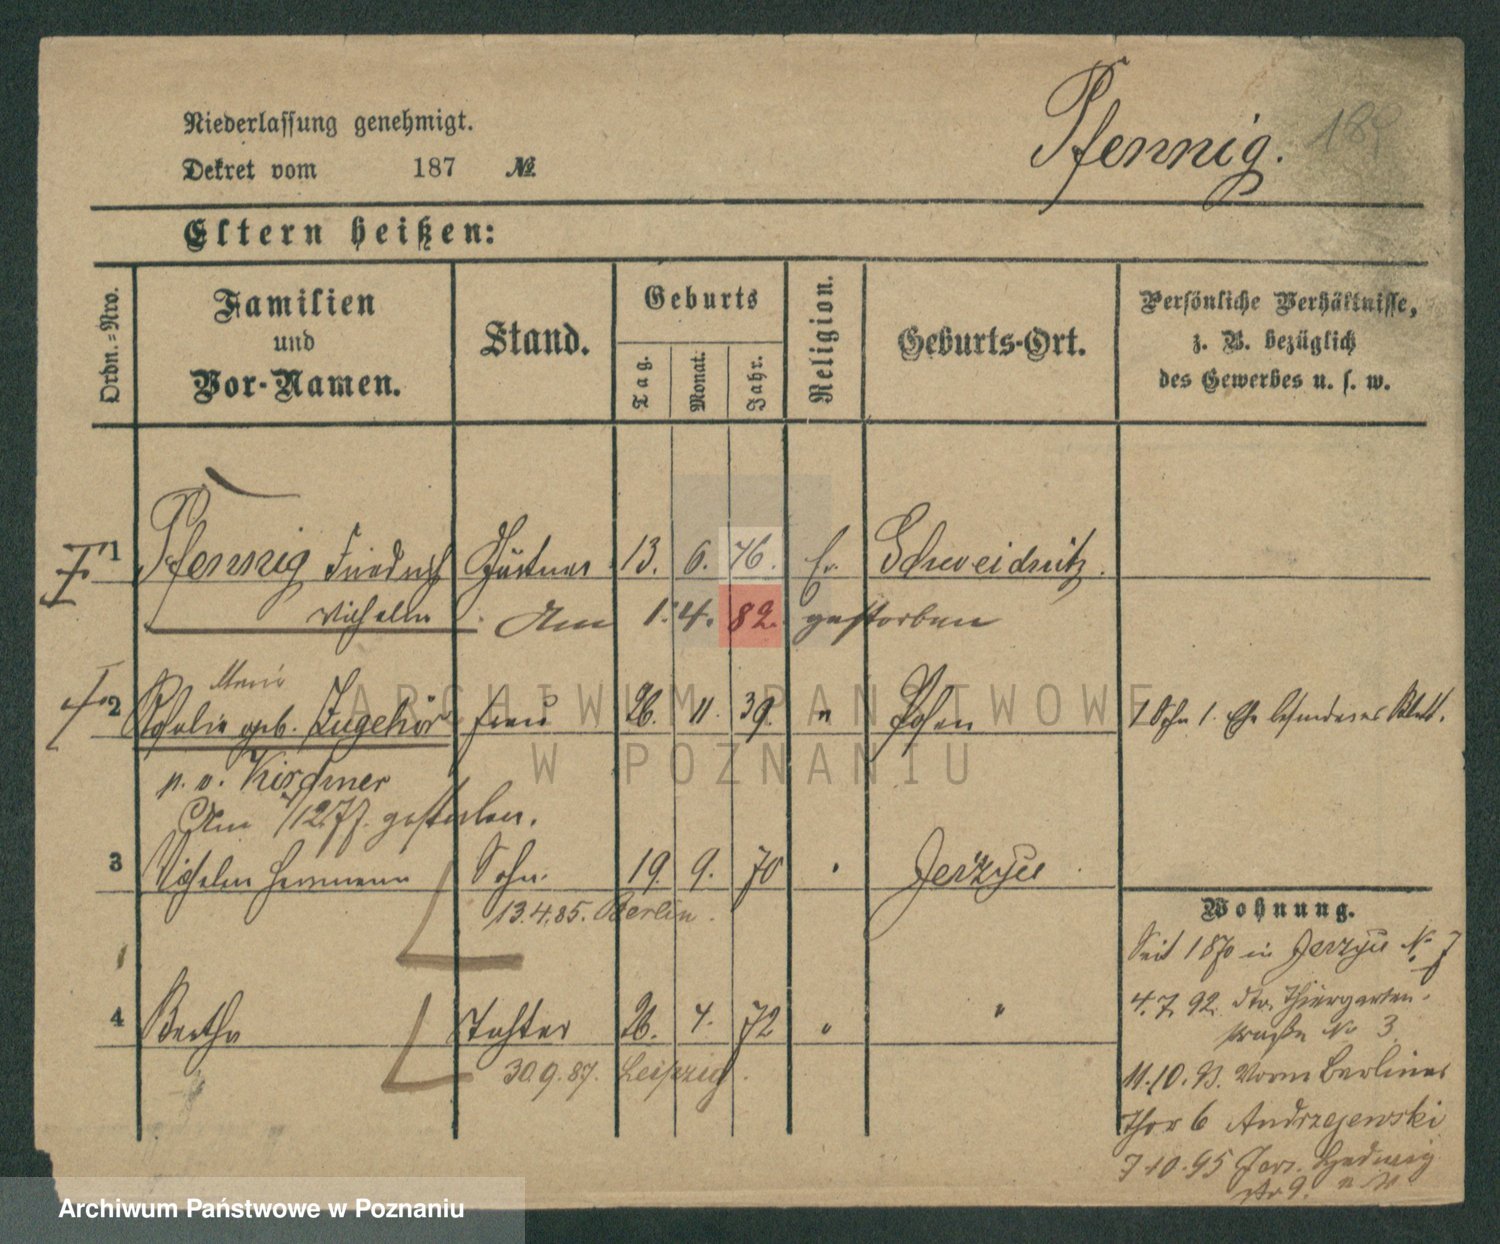 Niederlassung genehmigt.
Dekret vom 187 №
Pfennig.
Eltern heißen:
Ordn.=Nro.
Familien
und
Vor-Namen.
Stand.
Geburts
Tag.
Monat.
Jahr.
Religion.
Geburts-Ort.
Persönliche Verhältnisse,
z. B. bezüglich
des Gewerbes u. s. w.
1 Pfennig Friedrich Gärtner 13. 6. 76. Ev. Schweidnitz.
Wilhelm Am 1. 4. 82. gestorben
Marie
2 geb. Zugehör Frau 26. 11. 39. " Posen 1 Sohn 1. Ehe besonderes Blatt.
p. v. Kirschner
Am 1/12.77. gestorben.
3 Wilhelm Hermann Sohn. 19. 9. 70 " Jerzyce
13.4.85. Berlin.
Wohnung.
Seit 1870 in Jerzyce № 7
4 Bertha Tochter 26. 4. 72 " "
4.7.92. Thiergarten-
straße № 3.
30.9.87. Leipzig.
11.10.93. Vorm Berliner
Thor 6 Andrzejewski
7.10.95 Jers. Hedwig
str 9.
ARCHIWUM PAŃSTWOWE
W POZNANIU
Archiwum Państwowe w Poznaniu